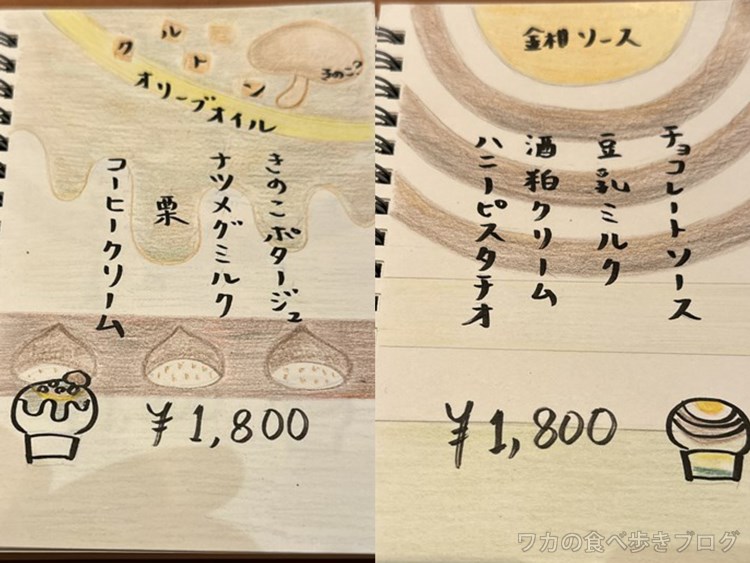 クルトン
きのこ?
オリーブオイル
きのこポタージュ
ナツメグミルク
栗
コーヒークリーム
¥1,800
金柑ソース
チョコレートソース
豆乳ミルク
酒粕クリーム
ハニーピスタチオ
¥1,800
ワカの食べ歩きブログ